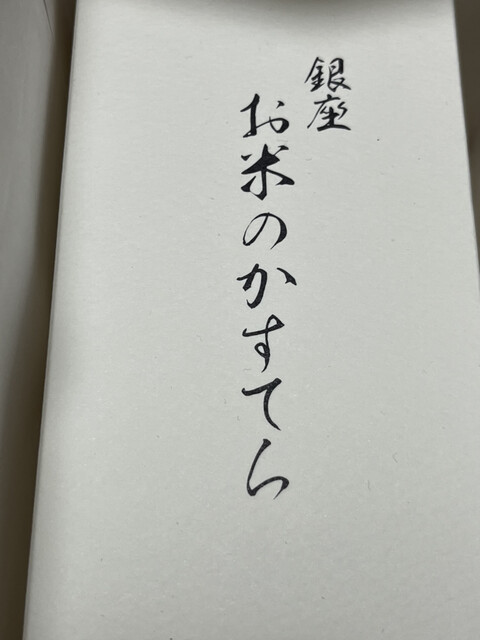 銀座
お米のかすてら